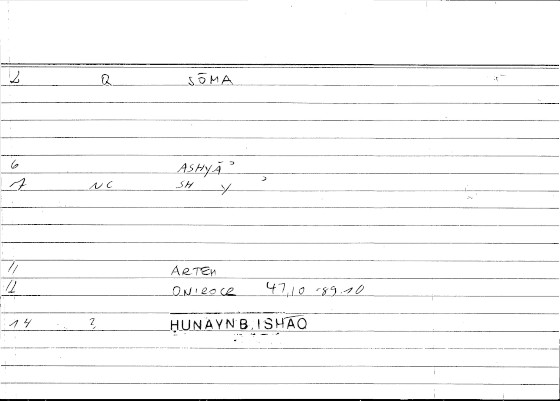 2 Q SŌMA
6 ASHYĀʾ
7 NC SH Y ʾ
11 ARTEM
12 ONIROCR 47,10-89.10
14 ? ḤUNAYN B. ISḤĀQ